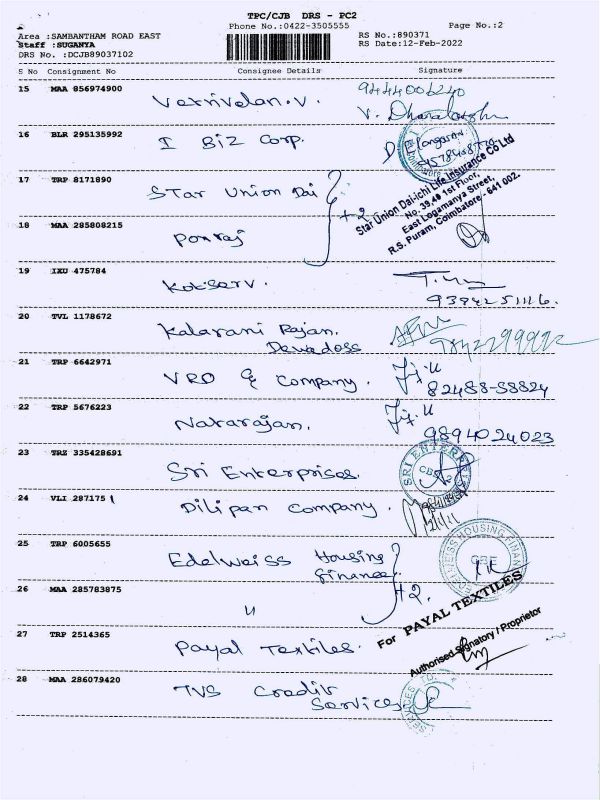 TPC/CJB DRS - PC2
Phone No.:0422-3505555 Page No.:2
Area :SAMBANTHAM ROAD EAST RS No.:890371
Staff :SUGANYA RS Date:12-Feb-2022
DRS No. :DCJB89037102
S No Consignment No Consignee Details Signature
15 MAA 856974900 Vetrivelan.V. 9444006240
V. Dhanalakshmi
16 BLR 295135992 I Biz Corp.
D Elangovan
17 TRP 8171890 Star Union Dai +2
Star Union Dai-ichi Life Insurance Co Ltd
No. 39,49 1st Floor,
East Logamanya Street,
R.S. Puram, Coimbatore - 641 002.
18 MAA 285808215 Ponraj
19 IXU 475784 Kotserv.
9384251116.
20 TVL 1178672 Kalarani Rajan.
Devadoss
21 TRP 6642971 VRO & Company. 82488-58824
22 TRP 5676223 Natarajan. 9894024023
23 TRZ 335428691 Sri Enterprises.
SRI ENTER
24 VLI 287175 Dilipan Company.
25 TRP 6005655 Edelweiss Housing
Finance +2.
EDELWEISS HOUSING FINAN
26 MAA 285783875 "
27 TRP 2514365 Payal Textiles.
For PAYAL TEXTILES
Authorised Signatory / Proprietor
28 MAA 286079420 TVS Credit
Services.